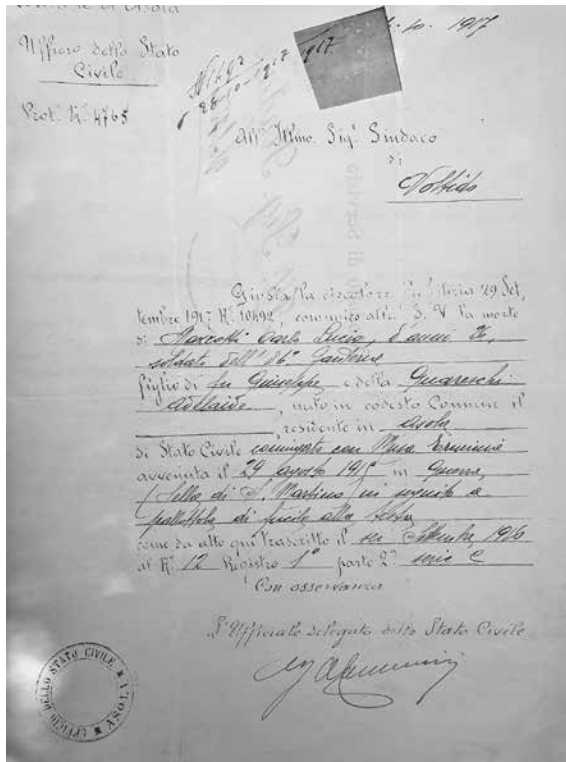 Ufficio dello Stato
Civile
Prot. N. 4765
N 1693
28 10 1917
10 1917
All' Illmo. Sig. Sindaco
di
Voltido
Giusta la circolare 29 Set,
tembre 1917 N. 10492, comunico alla S. V. la morte
di Carlo Lucio, d'anni 26,
soldato dell' 86° Fanteria
figlio di fu Giuseppe e della Guareschi
Adelaide, nato in codesto Comune il
, residente in Asola
di Stato Civile coniugato con Erminia
avvenuta il 29 agosto 1915 in guerra
(Sella di S. Martino) in seguito a
pallottola di fucile alla testa
come da atto qui trascritto il sei Settembre 1916
al N. 12 Registro 1° parte 2ª serie C
Con osservanza
L'Ufficiale delegato dello Stato Civile
UFFICIO DELLO STATO CIVILE ASOLA